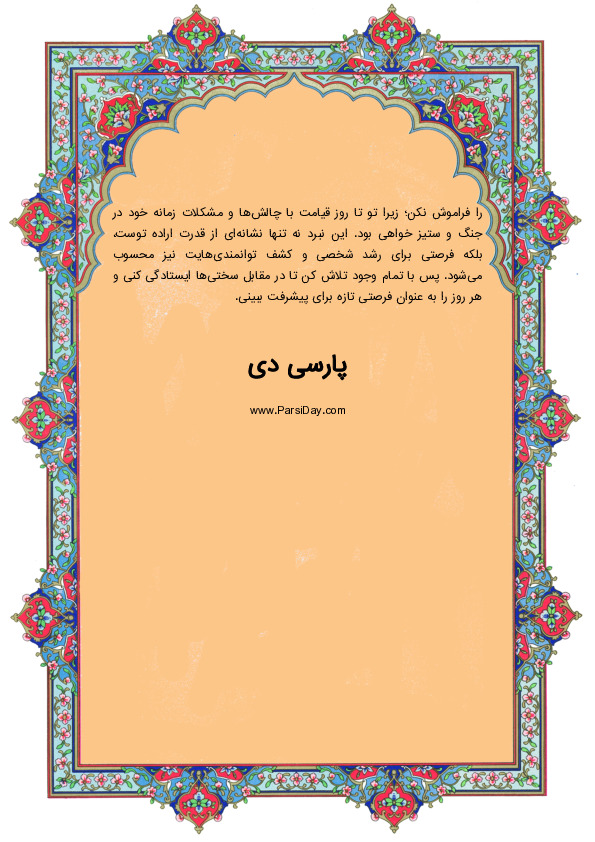 را فراموش نکن؛ زیرا تو تا روز قیامت با چالش‌ها و مشکلات زمانه خود در
جنگ و ستیز خواهی بود. این نبرد نه تنها نشانه‌ای از قدرت اراده توست،
بلکه فرصتی برای رشد شخصی و کشف توانمندی‌هایت نیز محسوب
می‌شود. پس با تمام وجود تلاش کن تا در مقابل سختی‌ها ایستادگی کنی و
هر روز را به عنوان فرصتی تازه برای پیشرفت ببینی.
پارسی دی
www.ParsiDay.com